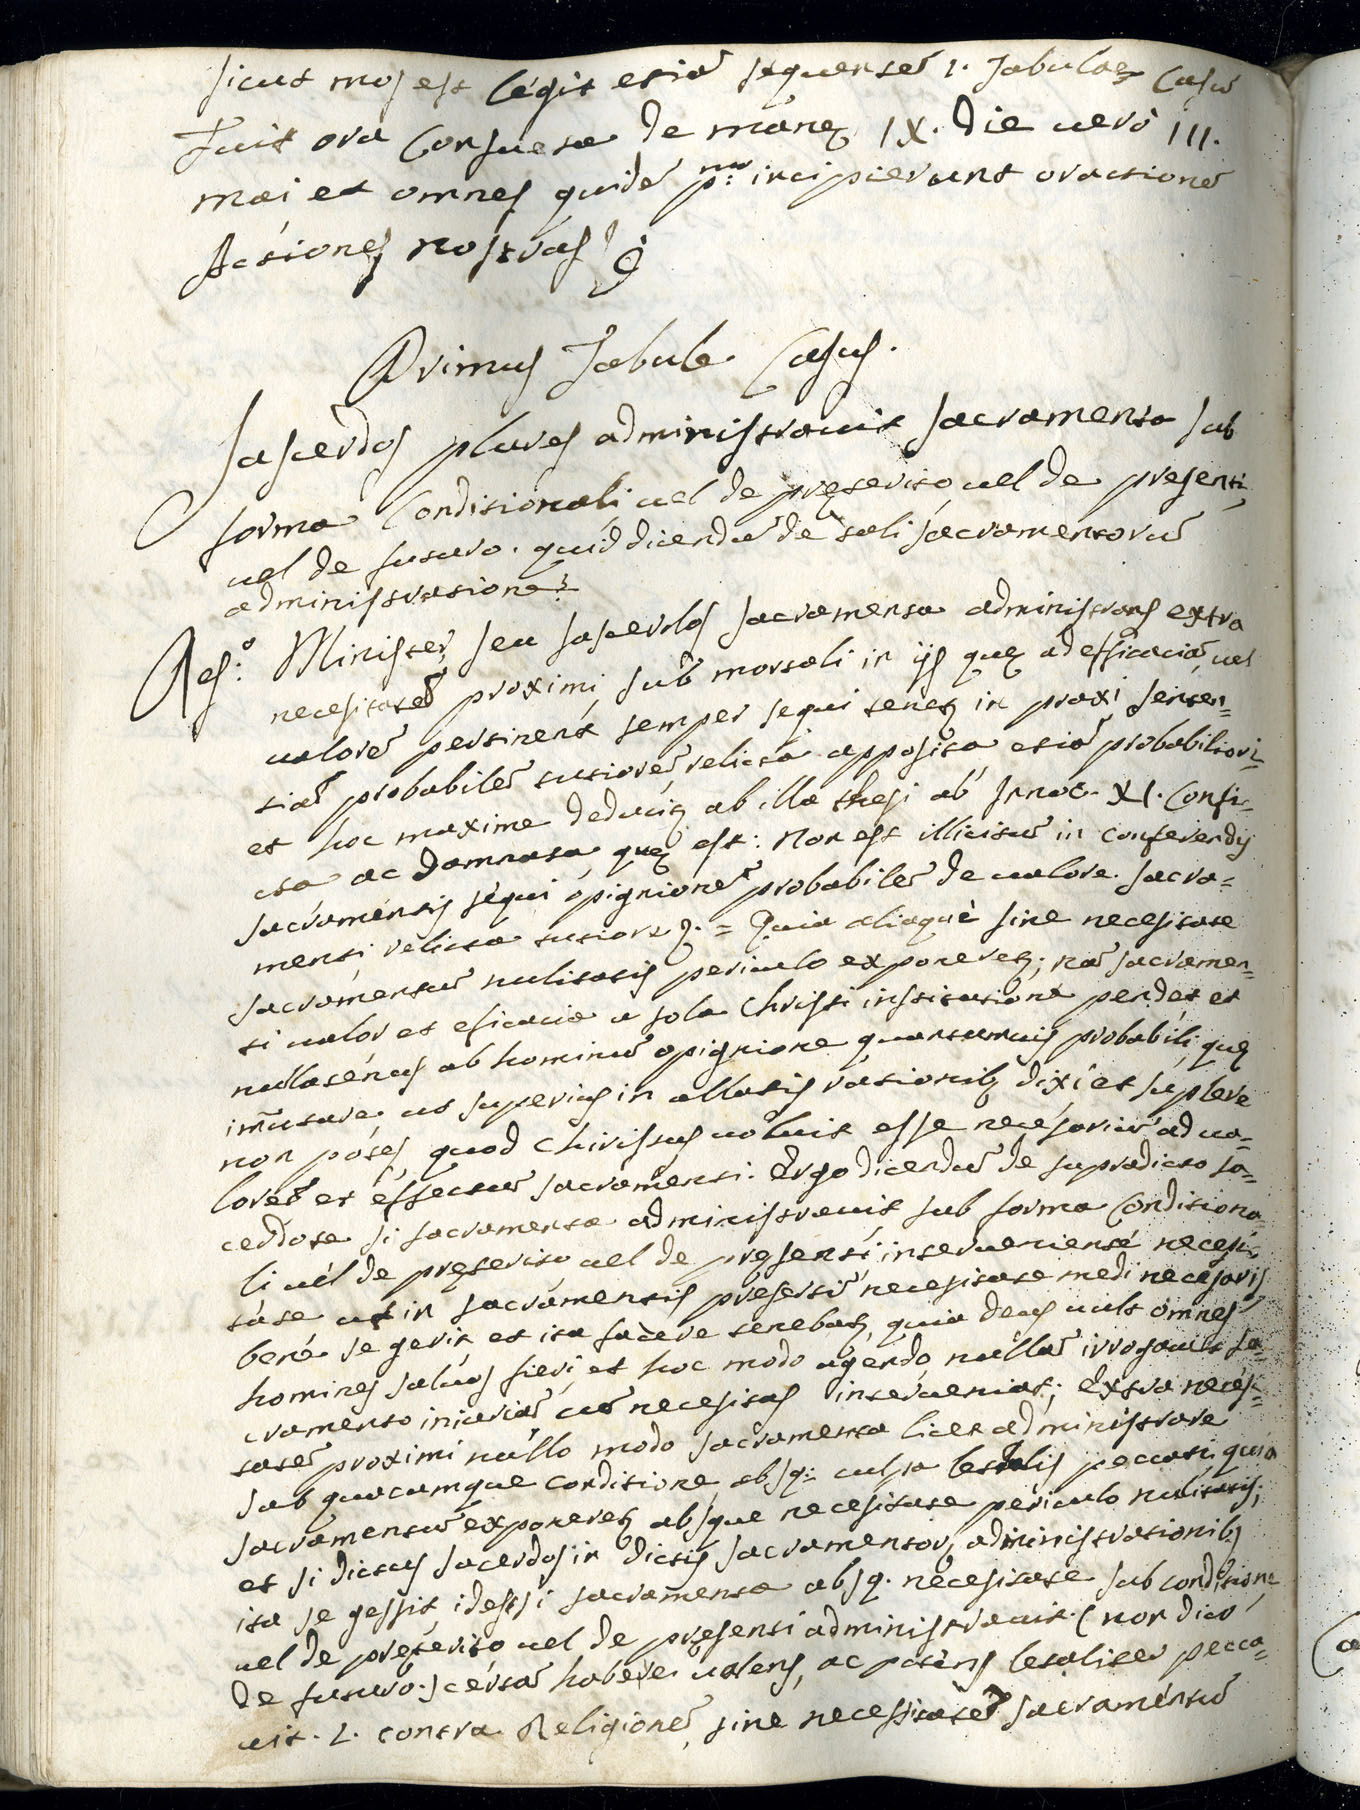 sicut mos est legit etiã sequentẽ 1. Tabulae Casũ
Fuit ora Consueta de manę IX. die uerò III.
mai et omnes quidẽ incipierunt oractionẽ
Actiones nostras
Primus Tabule Casus.
Sacerdos plures administrauit sacramenta sub
forma Conditionali uel de pręterito uel de presenti
uel de futuro. quid dicendũ de tali sacramentorũ
administratione?
Res.º Minister seu sacerdos sacramenta administrans extra
necesitatẽ proximi, sub mortali in ijs quę ad efficaciã, uel
ualorẽ pertinent semper sequi tenetʒ in praxi senten=
tiã probabilẽ tutiorẽ relicta apposita etiã probabiliori=
et hoc maxime deducitʒ ab illa thesi ab Innoc. XI. Confic=
ta ac damnata, quę est: Non est illicitũ in conferendis
sacramentis sequi opignionẽ probabilẽ de ualore sacra=
menti relicta tutiore. = Quia aliaquè sine necesitate
sacramentũ nulitatis periculo exponeretʒ; nã sacramen=
ti ualor et eficacia a sola Christi institutione pendet et
nullatenus ab hominũ opignione quantumuis probabili, quę
imutare, ut superius in allatis rationibʒ dixi et suplere
non potest, quod Christus uoluit esse necesariũ ad ua=
lorẽ et effectũ sacramenti. Ergo dicendũ de supradicto sa=
cerdote si sacramenta administrauit sub forma Conditiona=
li uel de pręterito uel de pręsenti interueniente necesi=
tate ut in sacramentis presertĩ necesitate medi necesariis
benè se gerit et ita facere tenebatʒ, quia deus uult omnes
homines saluos fieri, et hoc modo agendo nullã irrogauit sa=
cramento iniuriã cũ necesitas interueniat; Extra necesi=
tatẽ proximi nullo modo sacramenta licet administrare
sub quacumque conditione absq: culpa letalis peccati quia
sacramentũ exponeretʒ absque necesitate periculo nulitatis;
et si dictus sacerdos in dictis sacramentorʒ administrationibʒ
ita se gessit, idest si sacramenta absq. necesitate sub conditione
uel de pręterito uel de pręsenti administrauit. (non dico
de futuro.) certã habere ualens, ac potens letaliter pecca=
uit. 1. contra Religionẽ, sine necessitatẽ sacramentũ